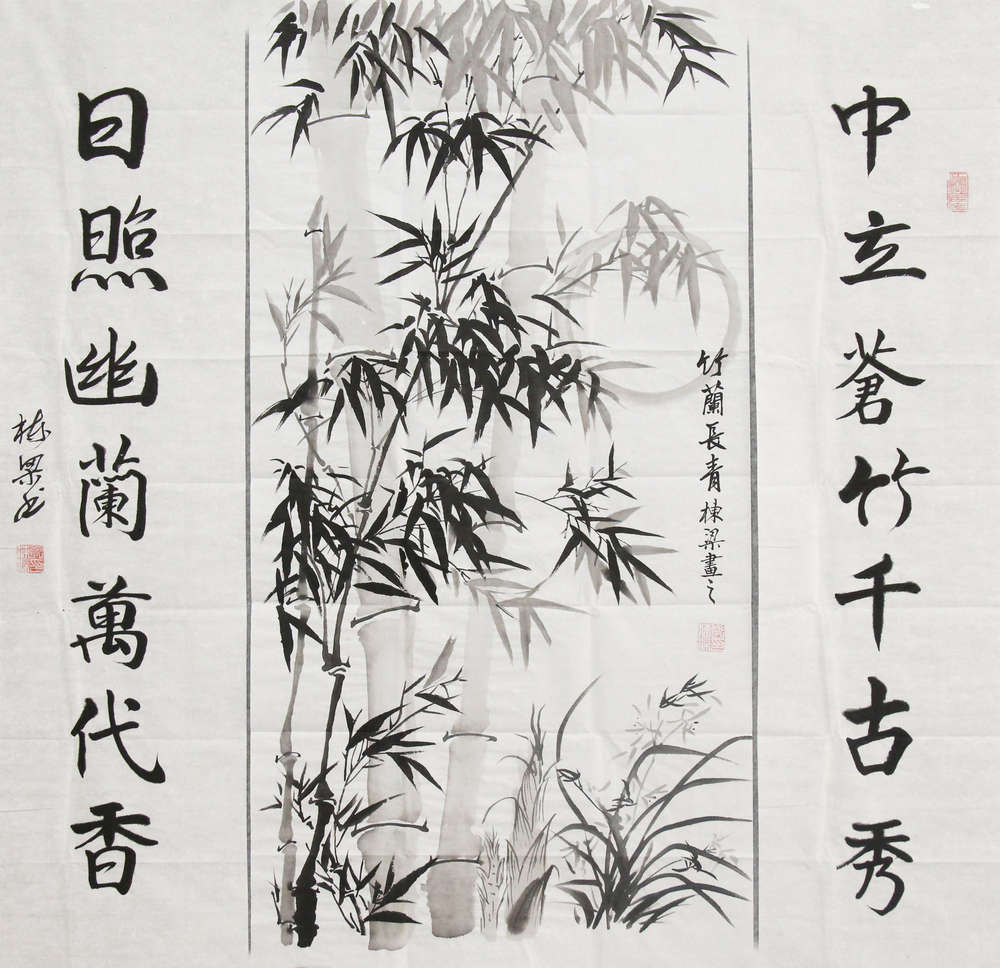 中立蒼竹千古秀
竹蘭長青棟梁畫之
日照幽蘭萬代香
栋梁书